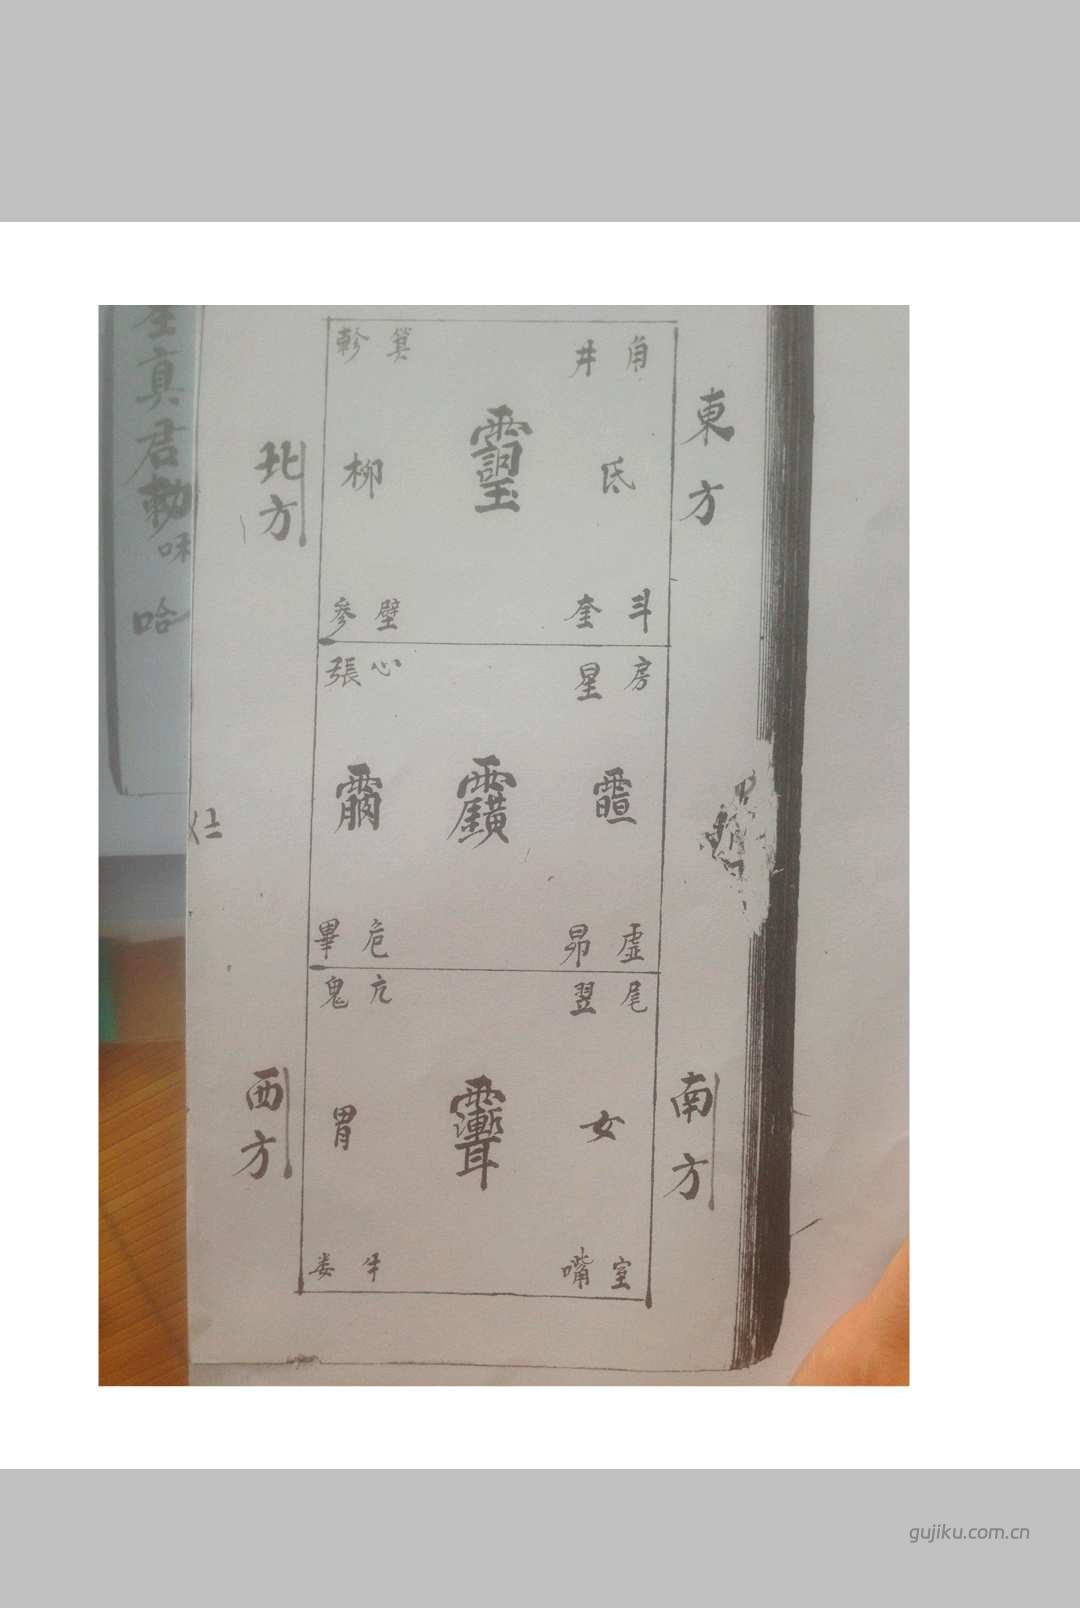 真君勅
哈
東方
南方
北方
西方
角
井
氐
斗
奎
箕
軫
柳
壁
參
房
星
虛
昴
心
張
危
畢
尾
翌
女
室
嘴
亢
鬼
胃
牛
娄
gujiku.com.cn